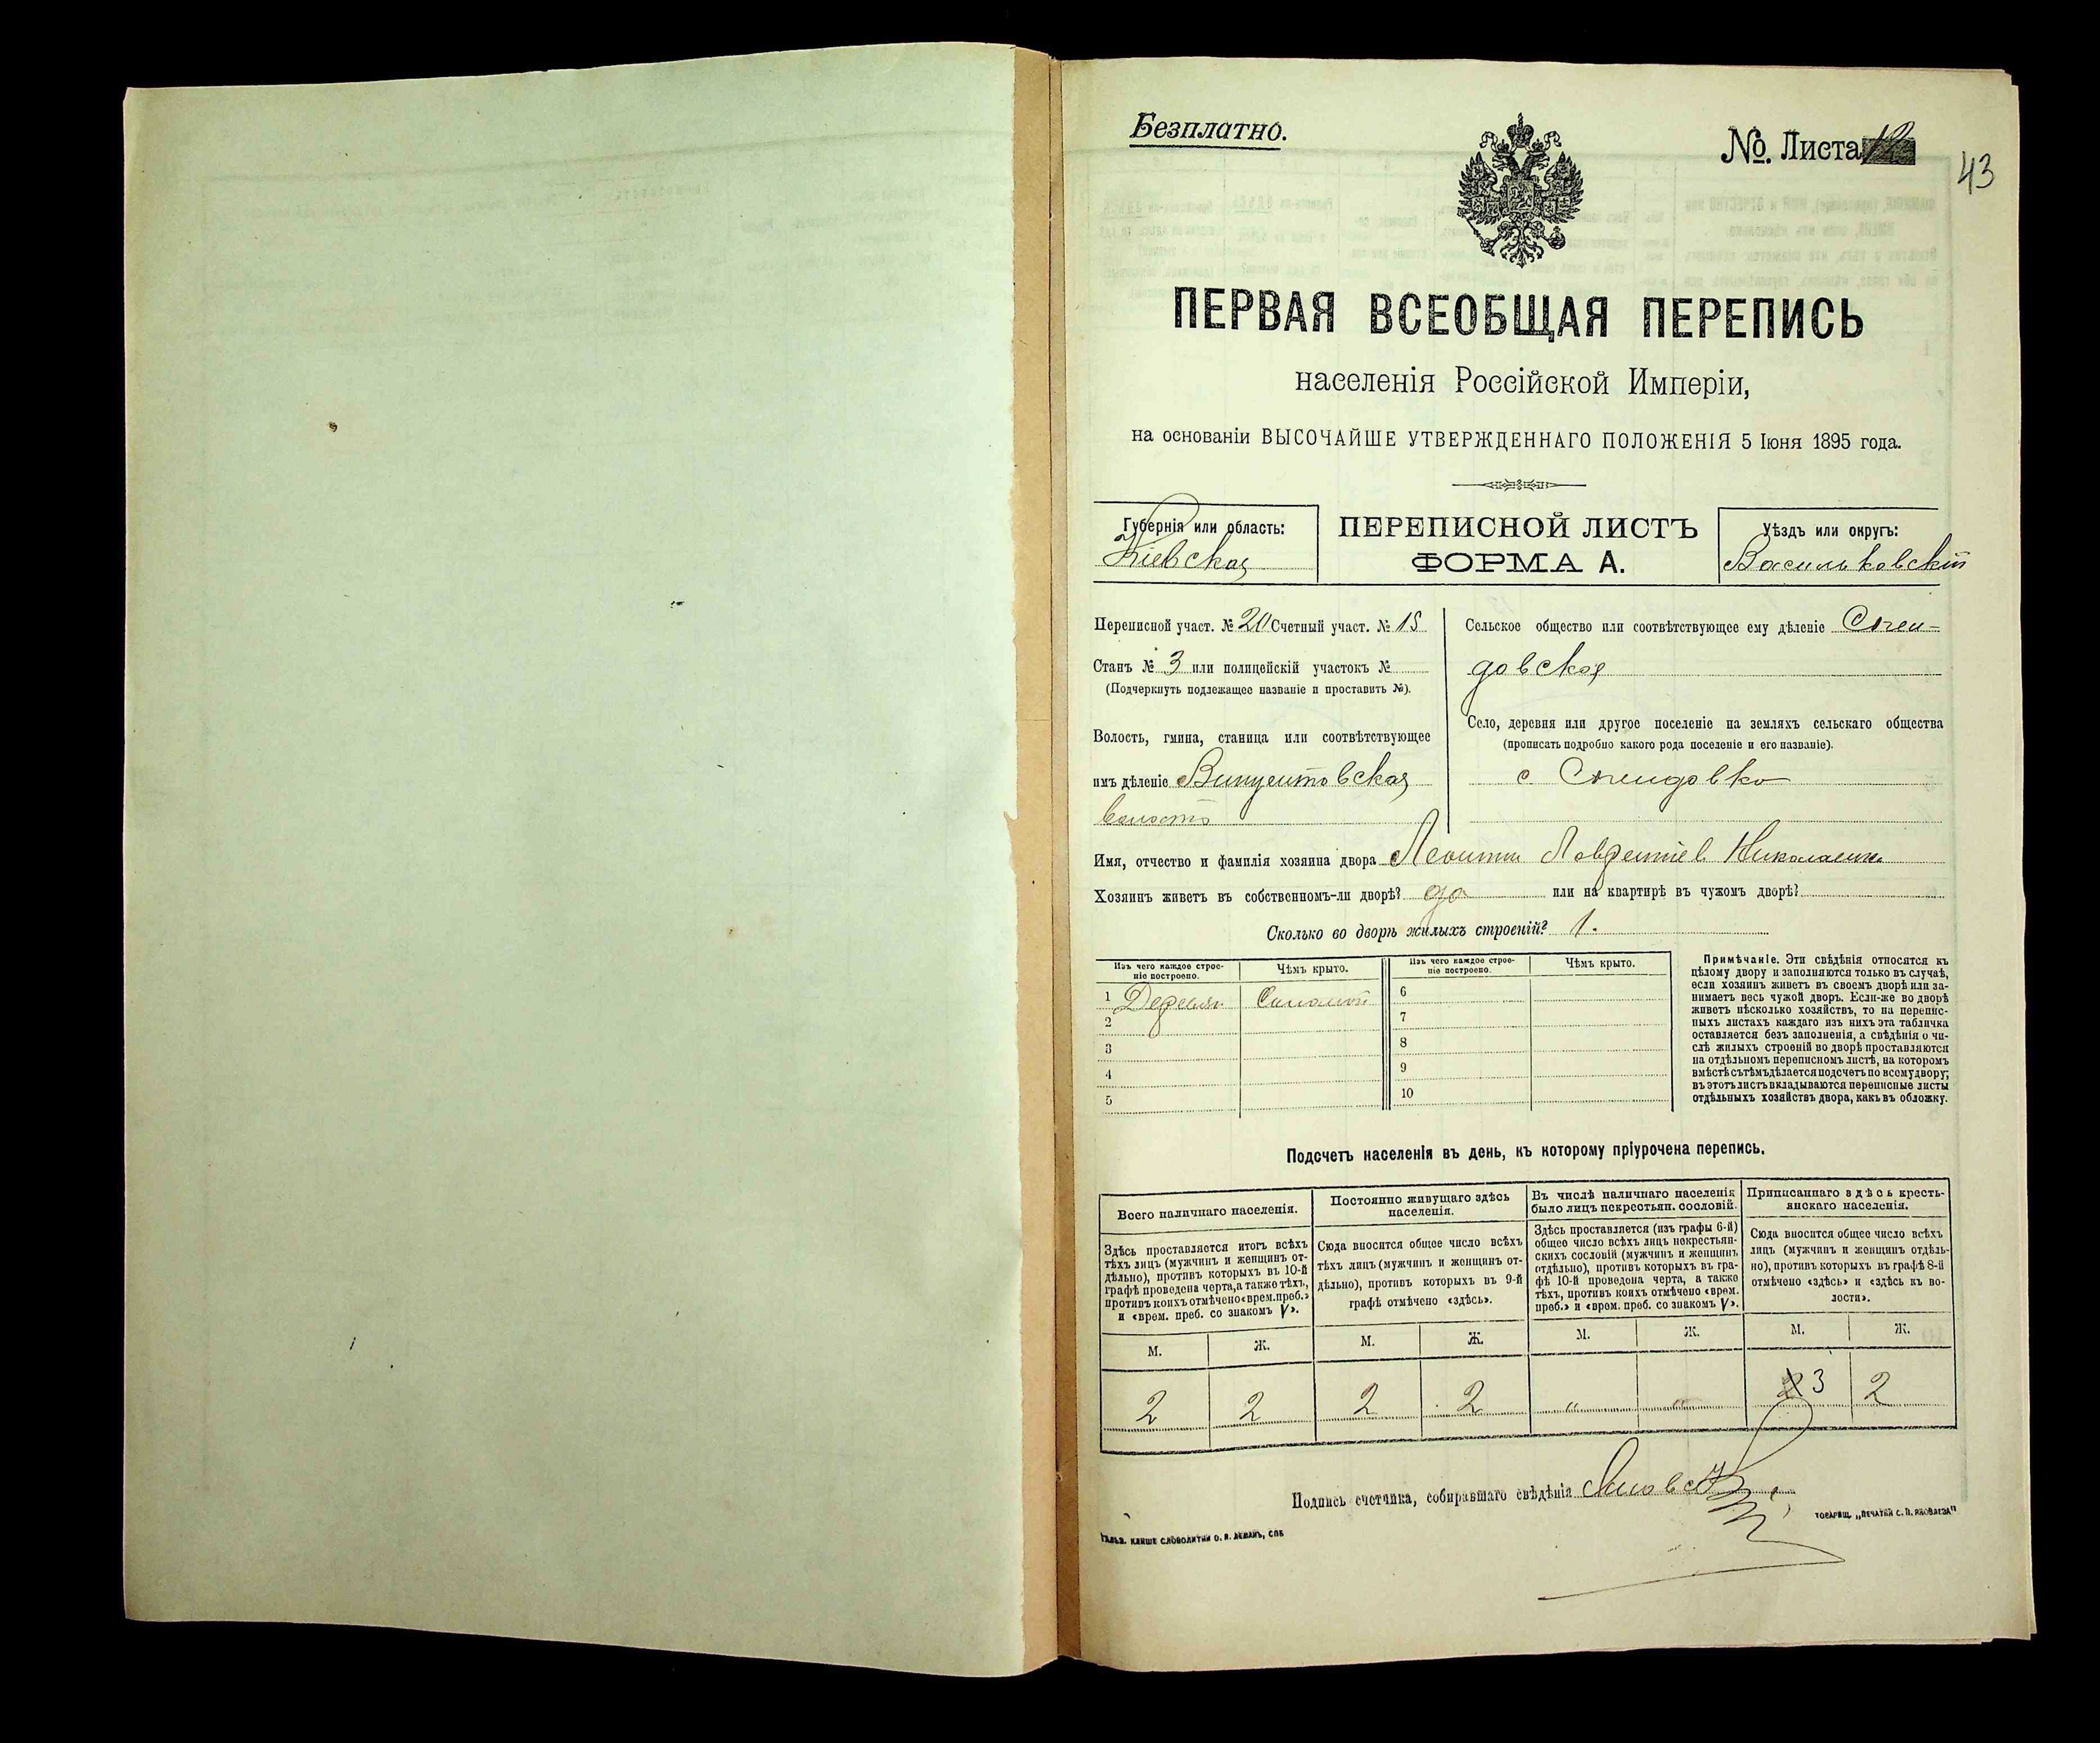 Безплатно.
№. Листа 12
43
ПЕРВАЯ ВСЕОБЩАЯ ПЕРЕПИСЬ
населенія Россійской Имперіи,
на основаніи ВЫСОЧАЙШЕ УТВЕРЖДЕННАГО ПОЛОЖЕНІЯ 5 Іюня 1895 года.
Губернія или область:
Кіевская
ПЕРЕПИСНОЙ ЛИСТЪ
ФОРМА А.
Уѣздъ или округъ:
Васильковскій
Переписной участ. № 20 Счетный участ. № 15
Станъ № 3 или полицейскій участокъ №
(Подчеркнуть подлежащее названіе и проставить №).
Волость, гмина, станица или соотвѣтствующее
имъ дѣленіе Винцентовская
волость
Сельское общество или соотвѣтствующее ему дѣленіе
довская
Село, деревня или другое поселеніе на земляхъ сельскаго общества
(прописать подробно какого рода поселеніе и его названіе).
с
Имя, отчество и фамилія хозяина двора Леонтій Лаврентіев
Хозяинъ живетъ въ собственномъ-ли дворѣ? да или на квартирѣ въ чужомъ дворѣ?
Сколько во дворѣ жилыхъ строеній? 1.
Изъ чего каждое строе-
ніе построено.
Чѣмъ крыто.
Изъ чего каждое строе-
ніе построено.
Чѣмъ крыто.
1 Деревян Соломой 6
2 7
3 8
4 9
5 10
Примѣчаніе. Эти свѣдѣнія относятся къ
цѣлому двору и заполняются только въ случаѣ,
если хозяинъ живетъ въ своемъ дворѣ или за-
нимаетъ весь чужой дворъ. Если-же во дворѣ
живетъ нѣсколько хозяйствъ, то на перепис-
ныхъ листахъ каждаго изъ нихъ эта табличка
оставляется безъ заполненія, а свѣдѣнія о чи-
слѣ жилыхъ строеній во дворѣ проставляются
на отдѣльномъ переписномъ листѣ, на которомъ
вмѣстѣ съ тѣмъ дѣлается подсчетъ по всему двору;
въ этотъ листъ вкладываются переписные листы
отдѣльныхъ хозяйствъ двора, какъ въ обложку.
Подсчетъ населенія въ день, къ которому пріурочена перепись.
Всего наличнаго населенія.
Здѣсь проставляется итогъ всѣхъ
тѣхъ лицъ (мужчинъ и женщинъ от-
дѣльно), противъ которыхъ въ 10-й
графѣ проведена черта, а также тѣхъ,
противъ коихъ отмѣчено «врем. преб.»
и «врем. преб. со знакомъ V».
Постоянно живущаго здѣсь
населенія.
Сюда вносится общее число всѣхъ
тѣхъ лицъ (мужчинъ и женщинъ от-
дѣльно), противъ которыхъ въ 9-й
графѣ отмѣчено «здѣсь».
Въ числѣ наличнаго населенія
было лицъ некрестьян. сословій.
Здѣсь проставляется (изъ графы 6-й)
общее число всѣхъ лицъ некрестьян-
скихъ сословій (мужчинъ и женщинъ
отдѣльно), противъ которыхъ въ гра-
фѣ 10-й проведена черта, а также
тѣхъ, противъ коихъ отмѣчено «врем.
преб.» и «врем. преб. со знакомъ V».
Приписаннаго здѣсь кресть-
янскаго населенія.
Сюда вносится общее число всѣхъ
лицъ (мужчинъ и женщинъ отдѣль-
но), противъ которыхъ въ графѣ 8-й
отмѣчено «здѣсь» и «здѣсь къ во-
лости».
М. Ж. М. Ж. М. Ж. М. Ж.
2 2 2 2 „ „ 3 2
Подпись счетчика, собиравшаго свѣдѣнія
Гальв. клише словолитни О. И. Леманъ, СПБ
Товарищ. „Печатня С. П. Яковлева“